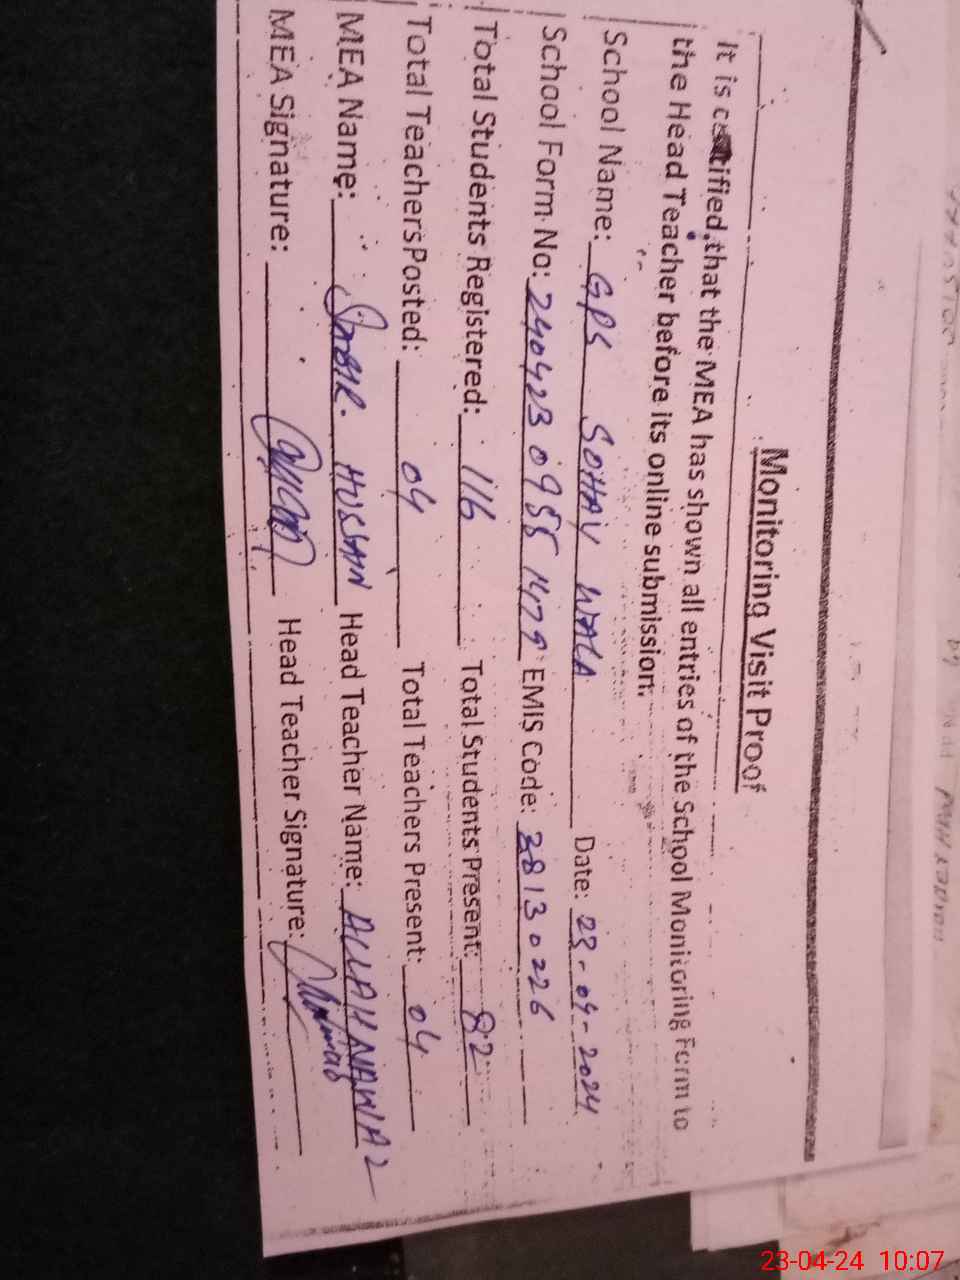 Monitoring Visit Proof
It is certified that the MEA has shown all entries of the School Monitoring Form to
the Head Teacher before its online submission.
School Name: GPS SOHAV WALA Date: 23-04-2024
School Form No: 240423 0955 1479 EMIS Code: 38130226
Total Students Registered: 116 Total Students Present: 82
Total Teachers Posted: 04 Total Teachers Present: 04
MEA Name: SABIR HUSSAN Head Teacher Name: ALLAH NAWAZ
MEA Signature: Head Teacher Signature:
23-04-24 10:07